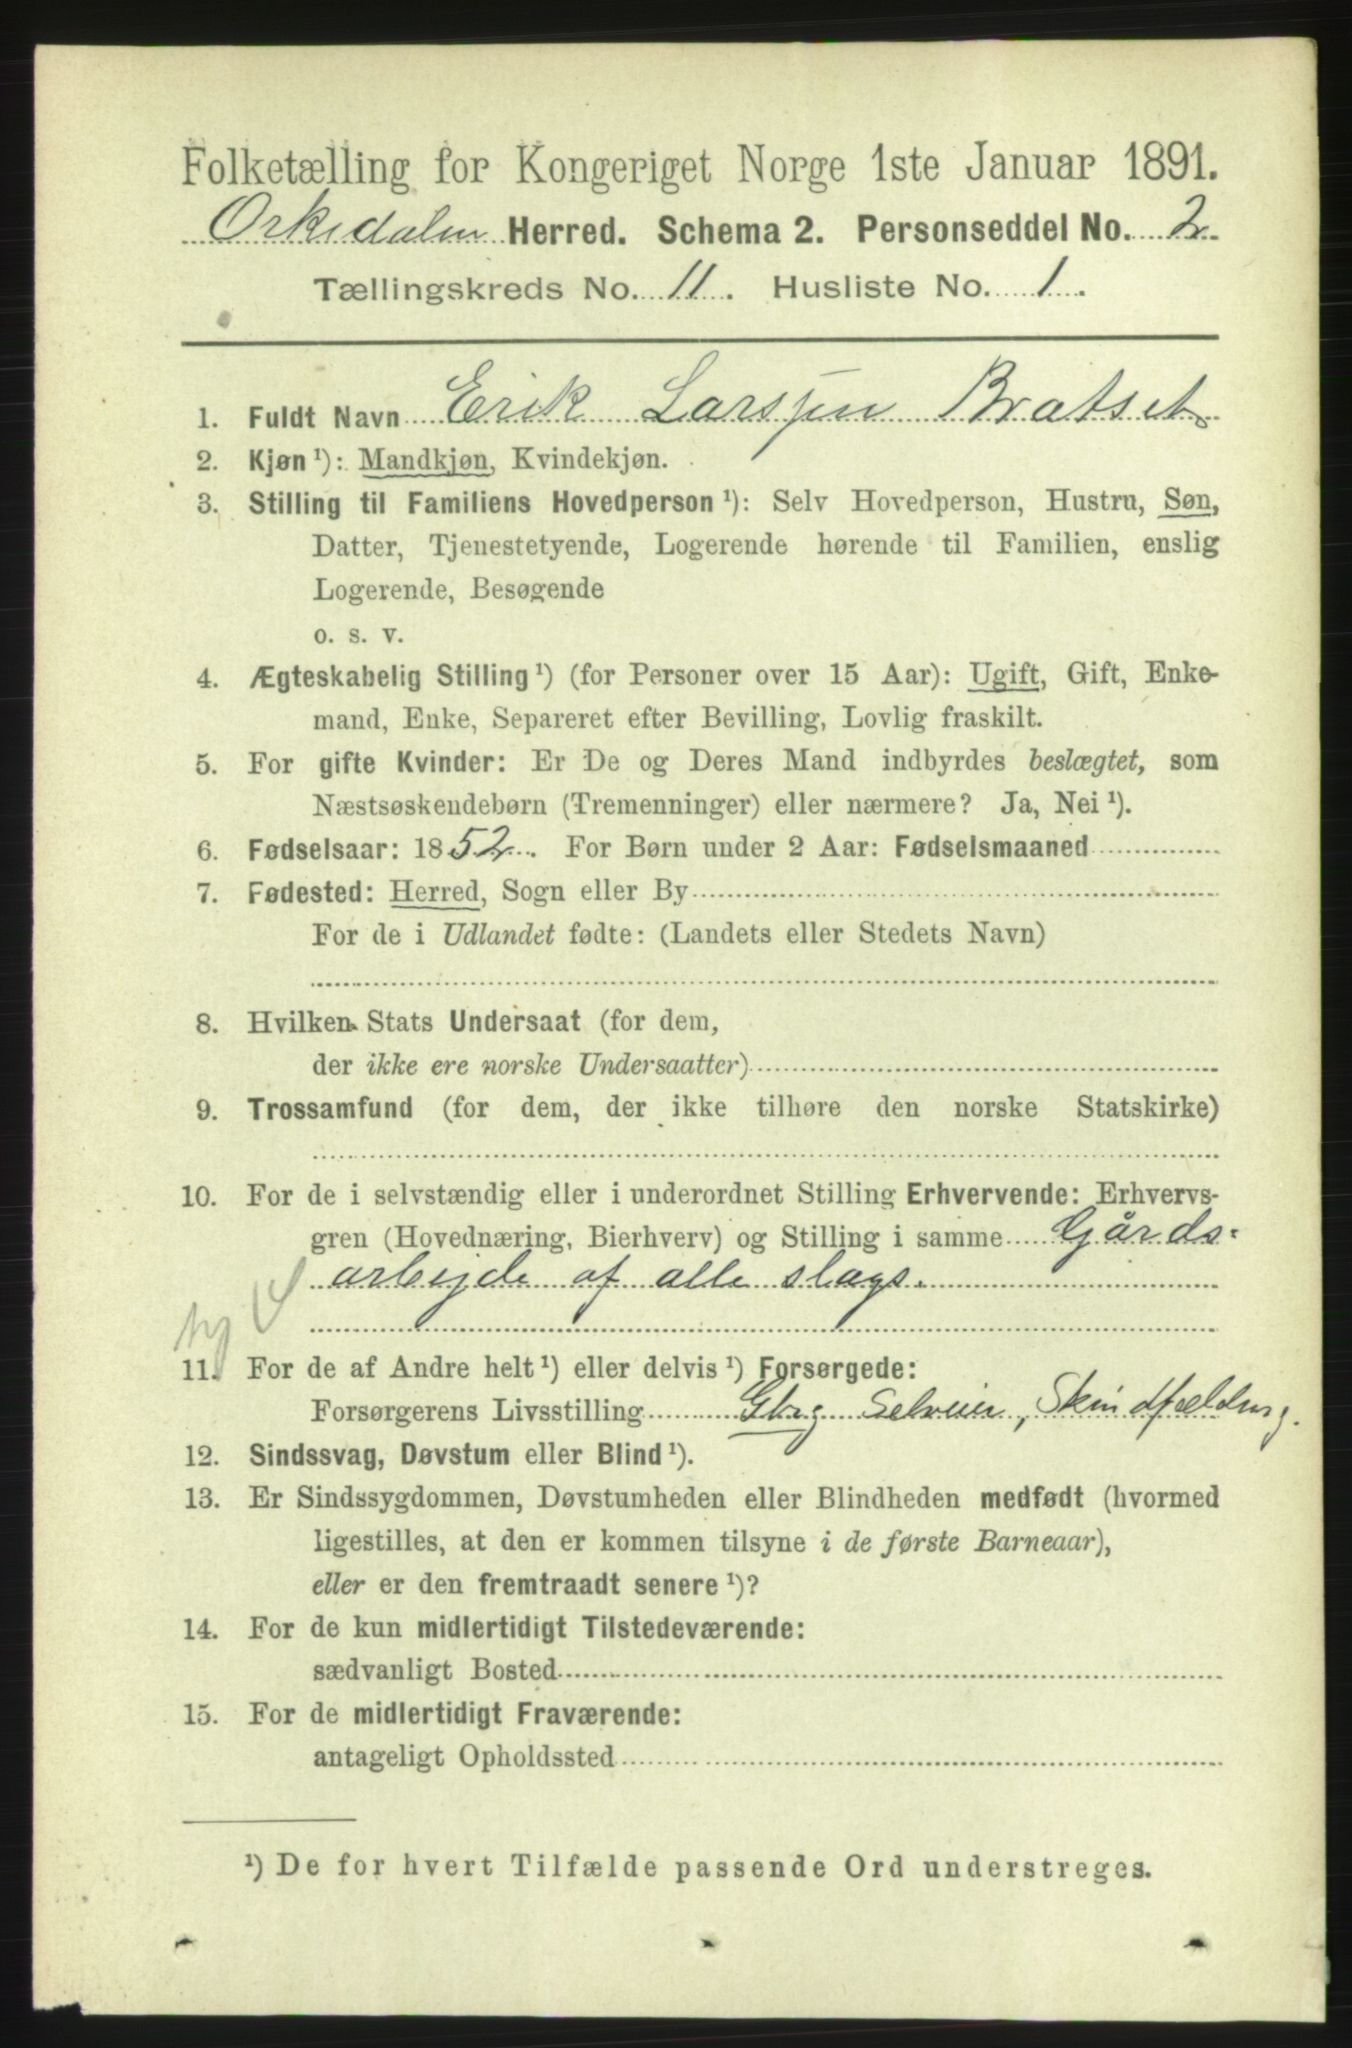 Folketælling for Kongeriget Norge 1ste Januar 1891.
Orkedalen Herred. Schema 2. Personseddel No. 2
Tællingskreds No. 11. Husliste No. 1.
1. Fuldt Navn Erik Larsjen Bratset
2. Kjøn ¹): Mandkjøn, Kvindekjøn.
3. Stilling til Familiens Hovedperson ¹): Selv Hovedperson, Hustru, Søn,
Datter, Tjenestetyende, Logerende hørende til Familien, enslig
Logerende, Besøgende
o. s. v.
4. Ægteskabelig Stilling ¹) (for Personer over 15 Aar): Ugift, Gift, Enke-
mand, Enke, Separeret efter Bevilling, Lovlig fraskilt.
5. For gifte Kvinder: Er De og Deres Mand indbyrdes beslægtet, som
Næstsøskendebørn (Tremenninger) eller nærmere? Ja, Nei ¹).
6. Fødselsaar: 1852. For Børn under 2 Aar: Fødselsmaaned
7. Fødested: Herred, Sogn eller By
For de i Udlandet fødte: (Landets eller Stedets Navn)
8. Hvilken Stats Undersaat (for dem,
der ikke ere norske Undersaatter)
9. Trossamfund (for dem, der ikke tilhøre den norske Statskirke)
10. For de i selvstændig eller i underordnet Stilling Erhvervende: Erhvervs-
gren (Hovednæring, Bierhverv) og Stilling i samme Gårds-
arbejde af alle slags.
11. For de af Andre helt ¹) eller delvis ¹) Forsørgede:
Forsørgerens Livsstilling Gbrg Selveier,
12. Sindssvag, Døvstum eller Blind ¹).
13. Er Sindssygdommen, Døvstumheden eller Blindheden medfødt (hvormed
ligestilles, at den er kommen tilsyne i de første Barneaar),
eller er den fremtraadt senere ¹)?
14. For de kun midlertidigt Tilstedeværende:
sædvanligt Bosted
15. For de midlertidigt Fraværende:
antageligt Opholdssted
¹) De for hvert Tilfælde passende Ord understreges.